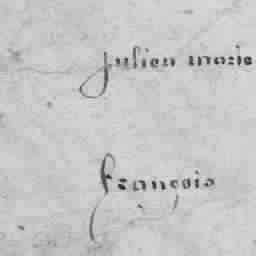 julien marie
françois